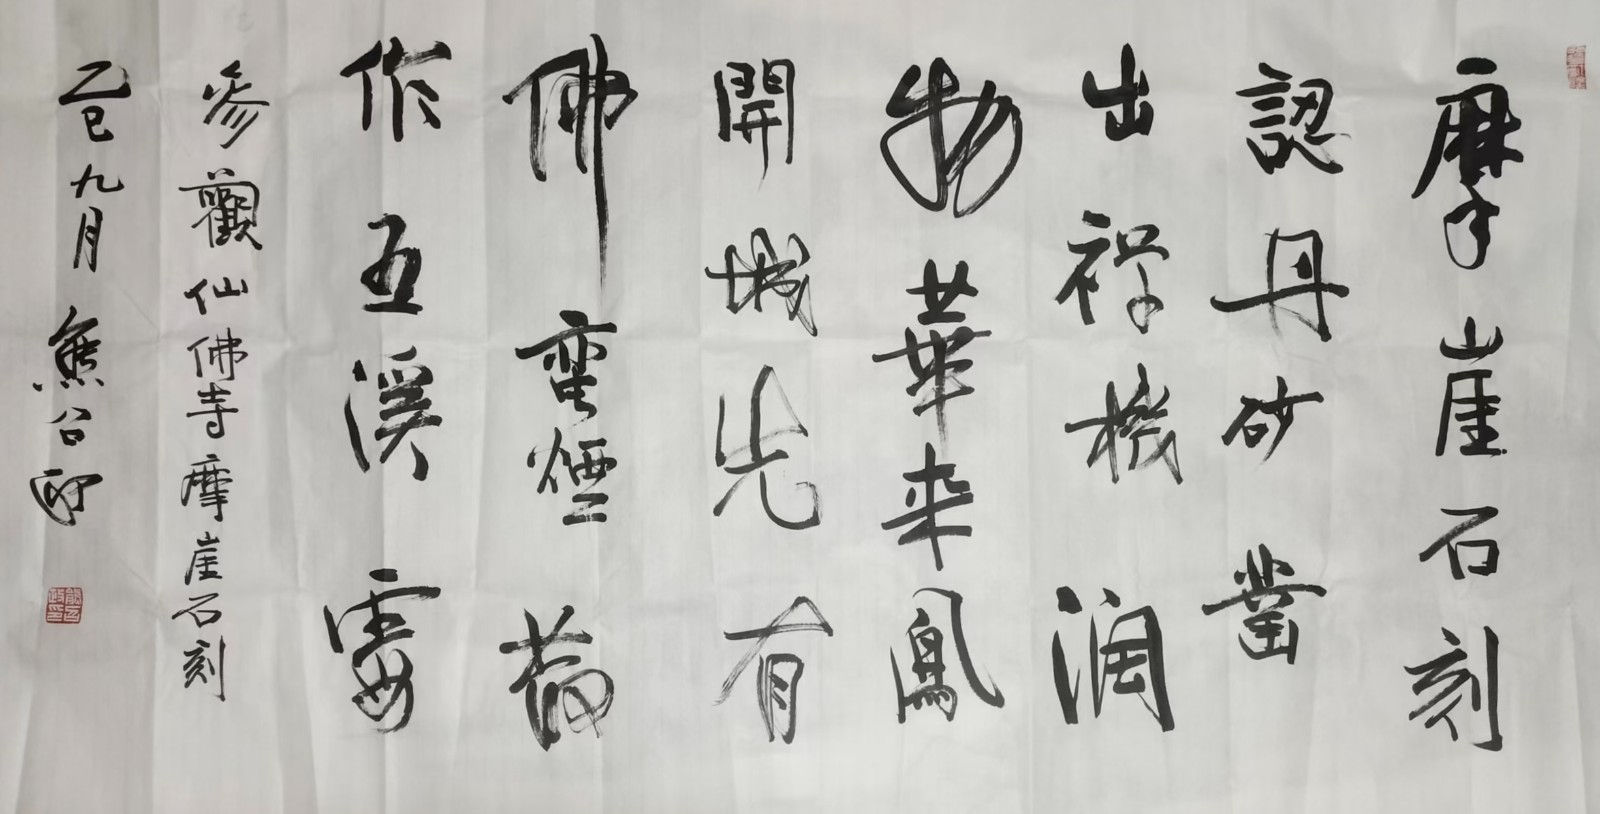 摩崖石刻
認丹砂鑿
出禪機潤
物華來鳳
開城先有
佛蠻煙散
作五溪雲
參觀仙佛寺摩崖石刻
乙巳九月熊谷